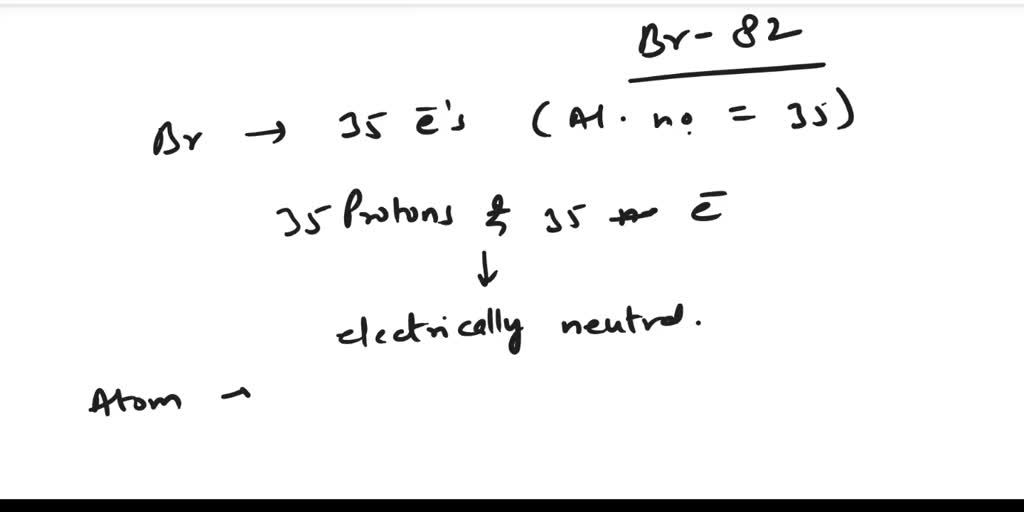 Br - 82
Br → 35 ē's (At. no. = 35)
35 Protons & 35 ē
↓
electrically neutral.
Atom →